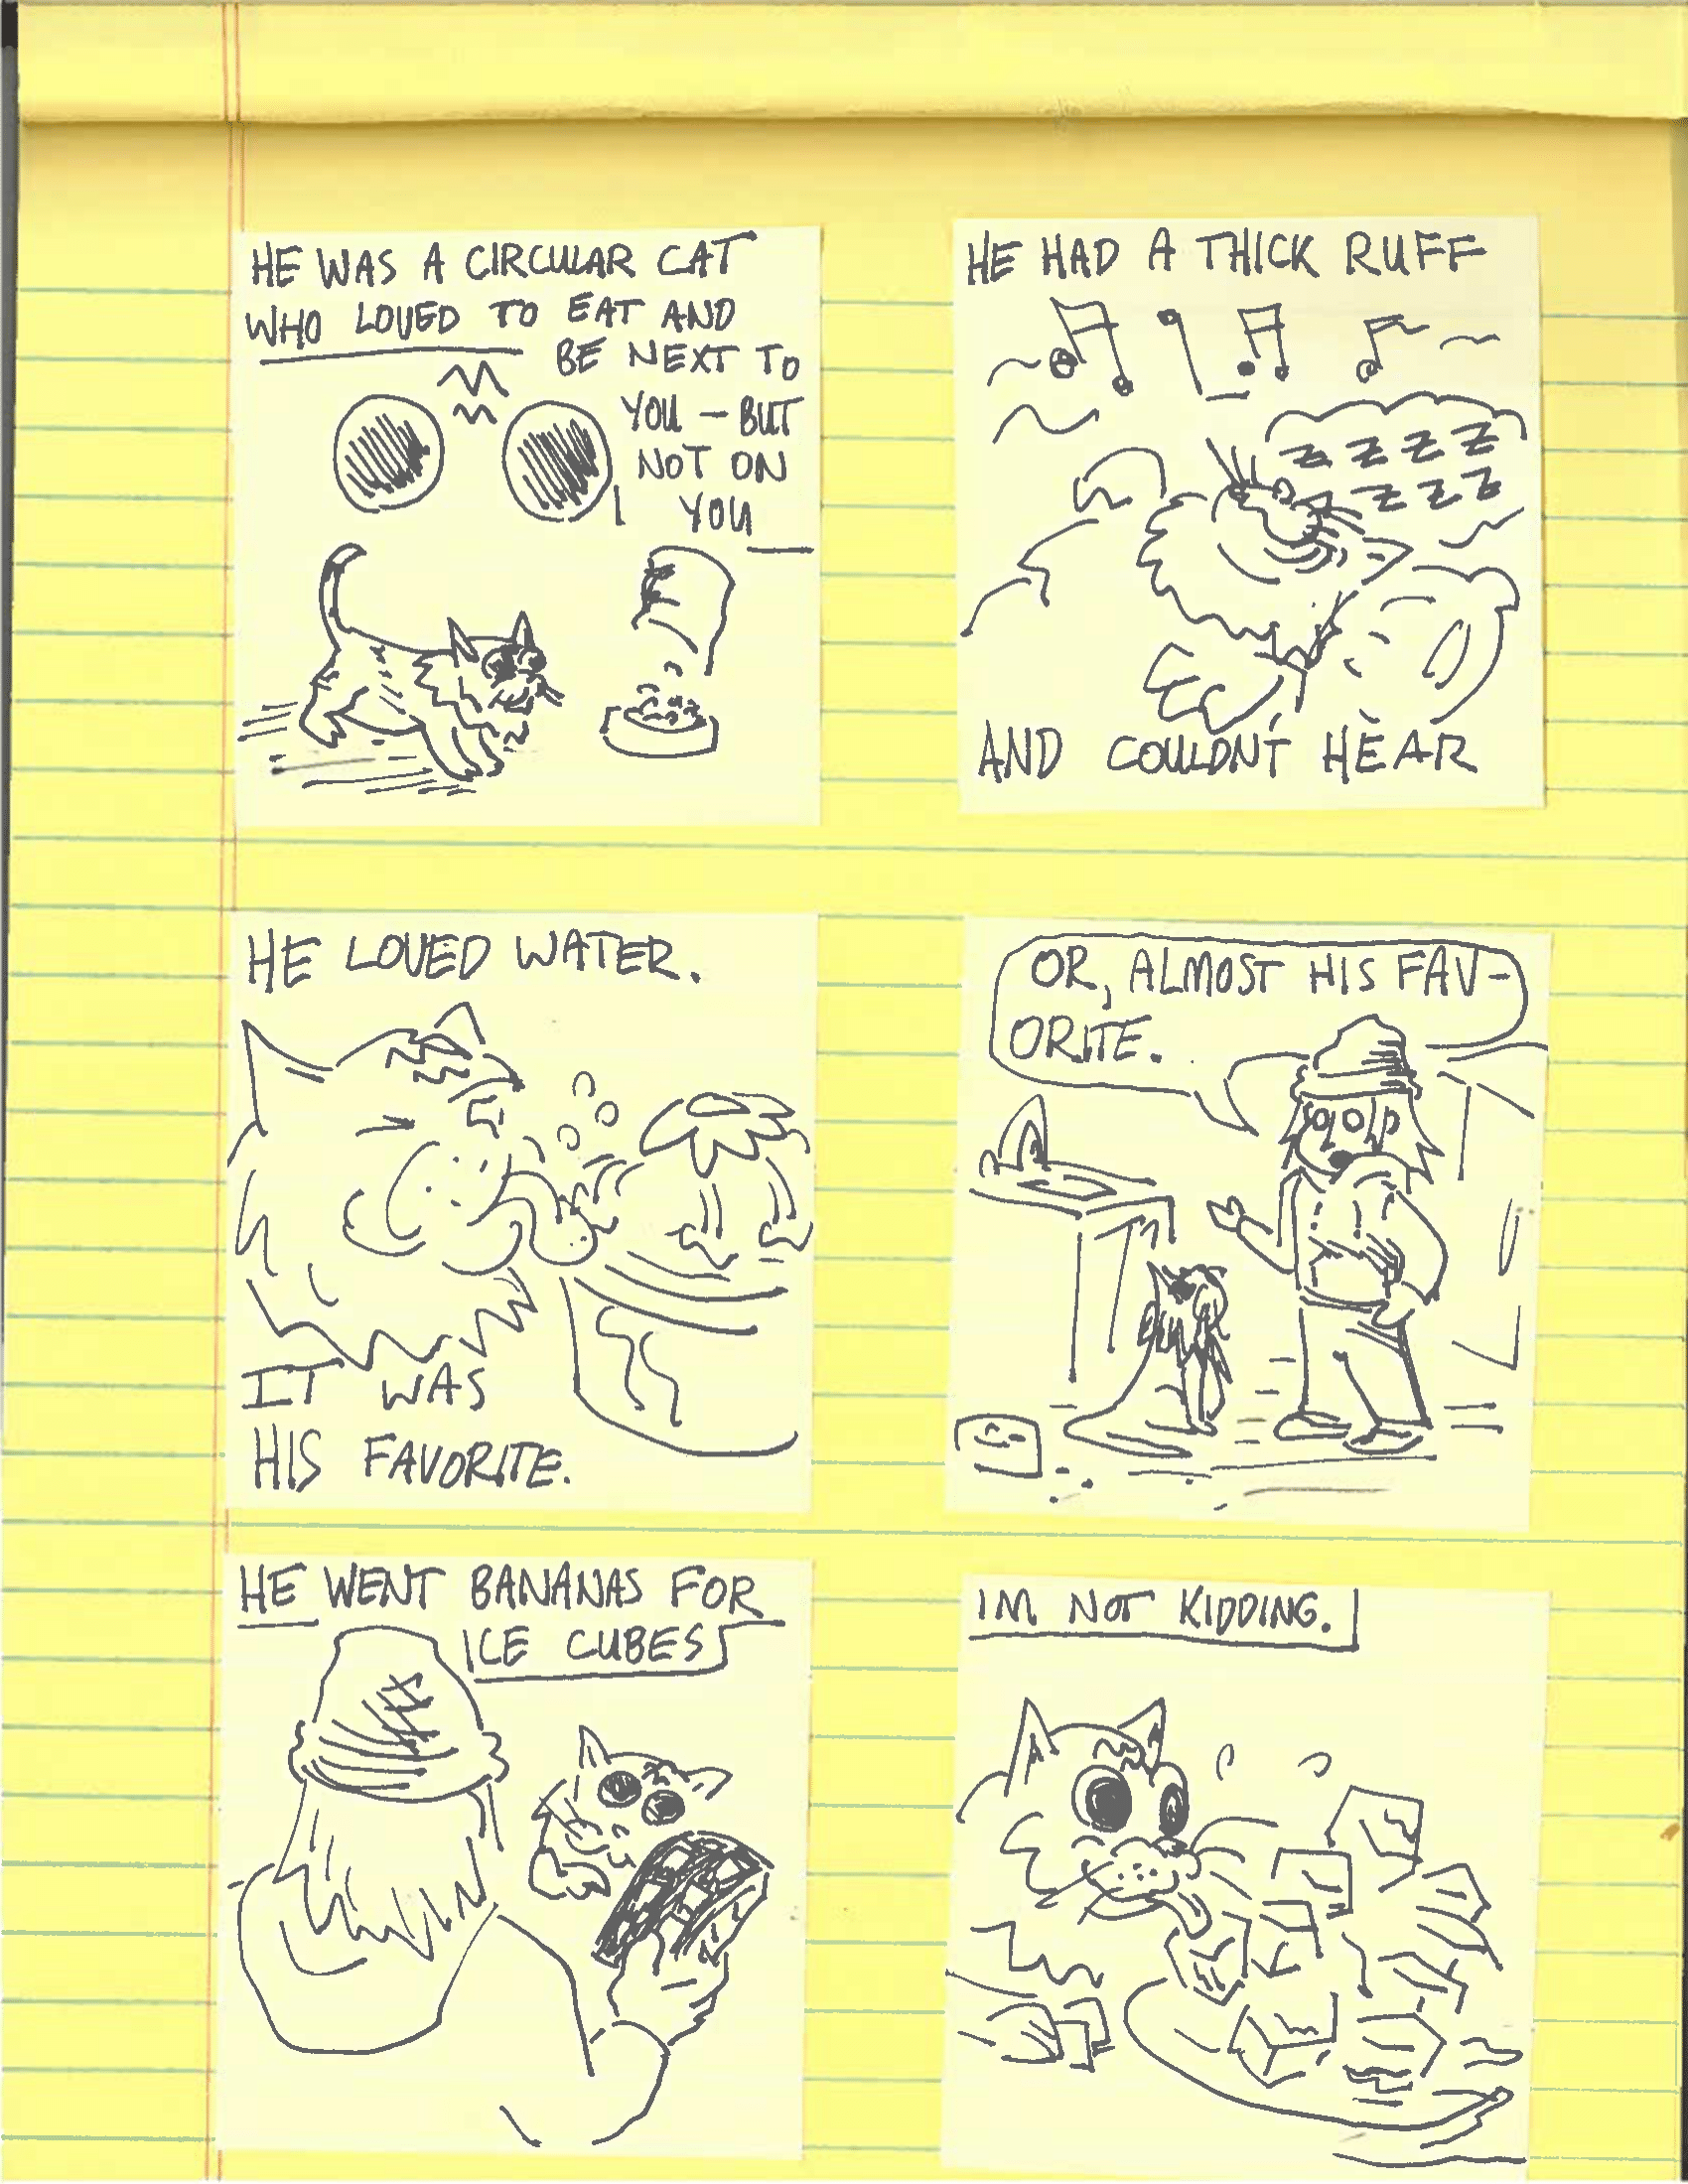 HE WAS A CIRCULAR CAT
WHO LOVED TO EAT AND
BE NEXT TO
YOU – BUT
NOT ON
YOU
HE HAD A THICK RUFF
Z Z Z Z
Z Z Z Z
AND COULDNT HEAR
HE LOVED WATER.
IT WAS
HIS FAVORITE.
OR, ALMOST HIS FAV-
ORITE.
HE WENT BANANAS FOR
ICE CUBES
IM NOT KIDDING.